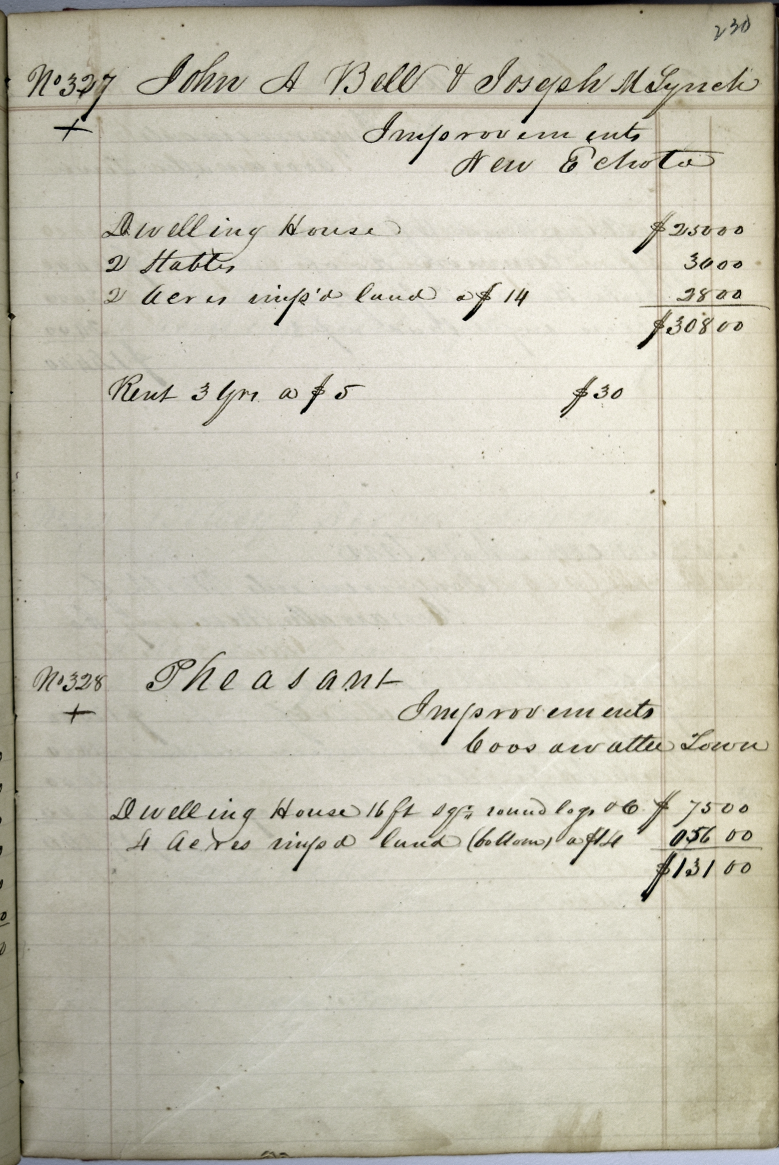 230
No 327 John A Bell & Joseph M Lynch
+ Improvements
New Echota
Dwelling House $250 00
2 Stables 30 00
2 Acres imp'd land a $14 28 00
$308 00
Rent 3 Yrs a $5 $30
No 328 Pheasant
+ Improvements
Coosawattee Town
Dwelling House 16 ft sqr round logs $ 75 00
4 Acres imp'd land (bottom) a $14 056 00
$131 00